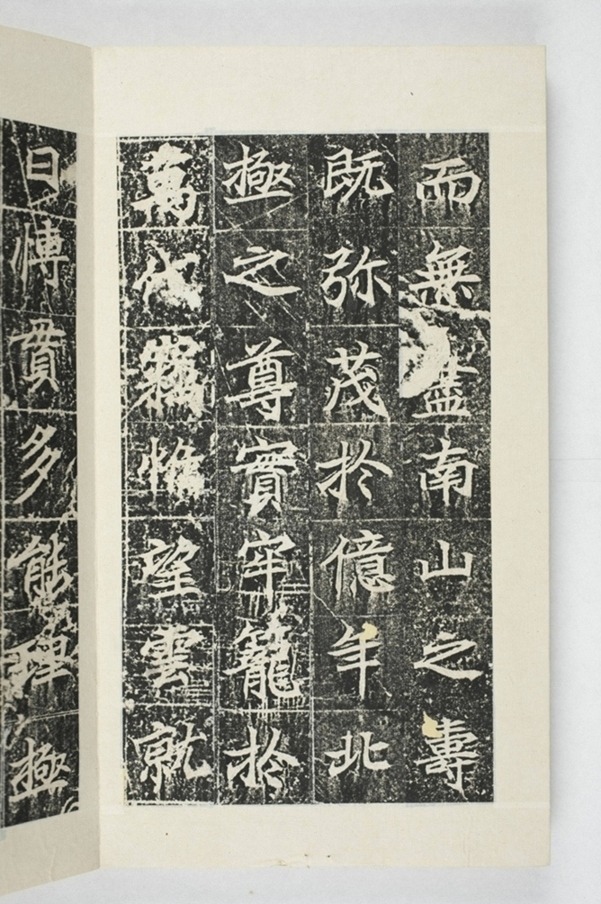 而無盡南山之壽
既弥茂於億年北
極之尊實牢籠於
萬代竊惟望雲就
日愽貫多能理極